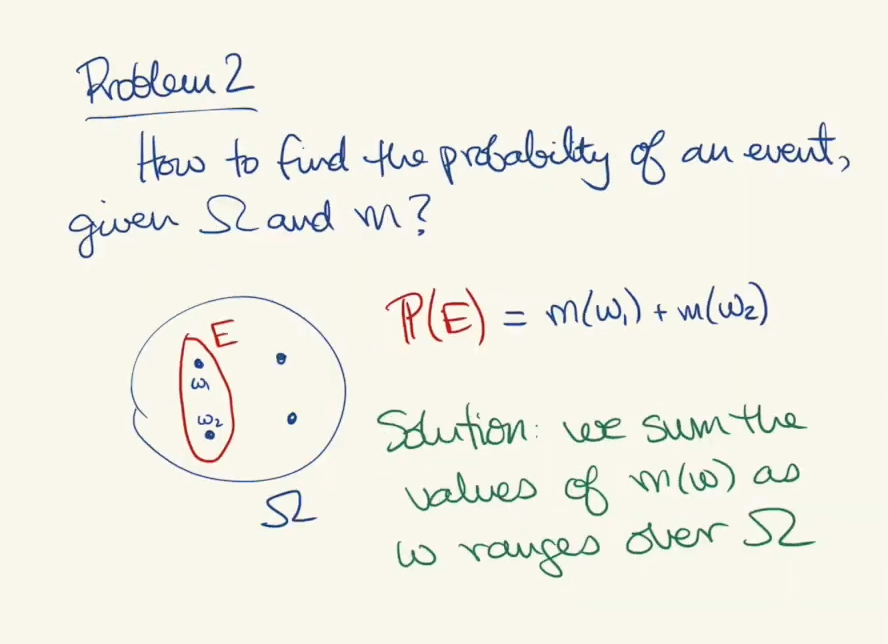 Problem 2
How to find the probability of an event,
given Ω and m?
E
ℙ(E) = m(ω₁) + m(ω₂)
ω₁
ω₂
Solution: we sum the
values of m(ω) as
ω ranges over Ω
Ω